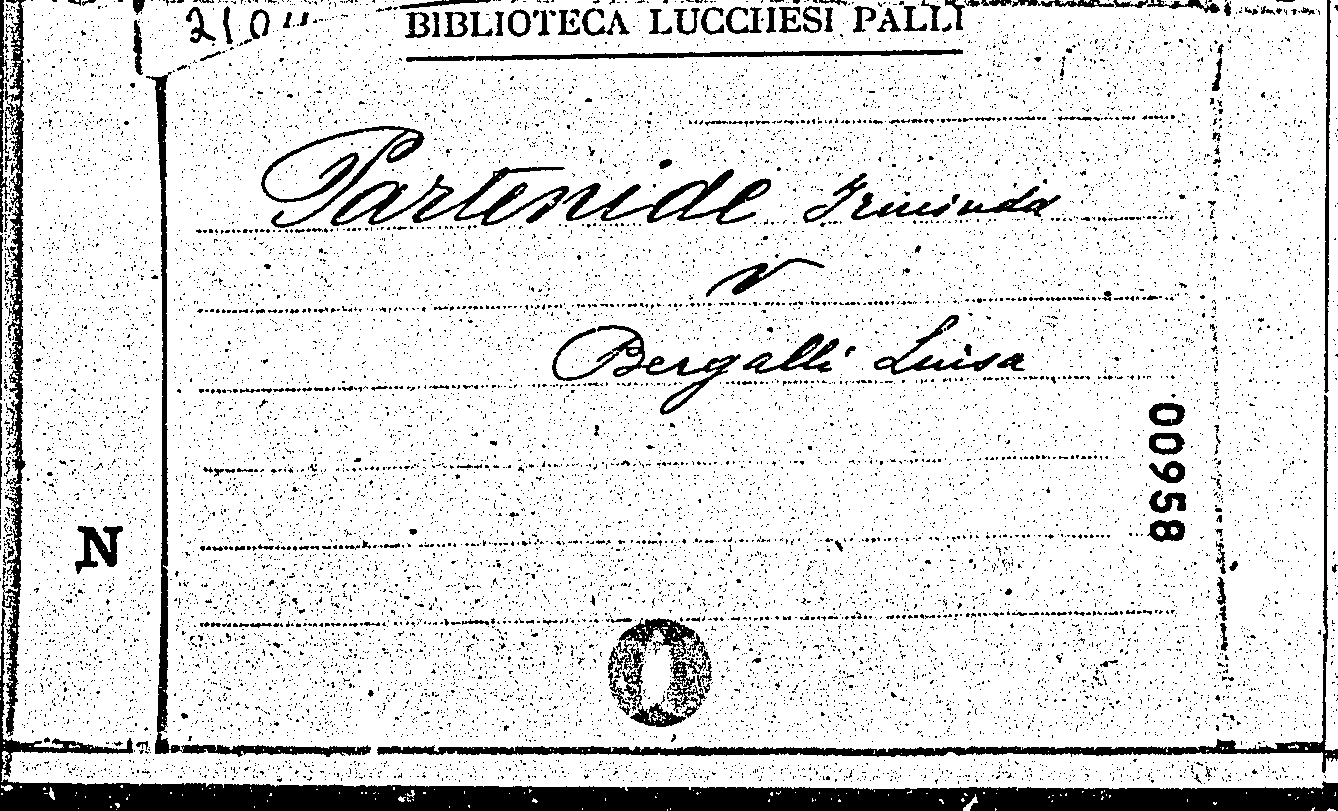 BIBLIOTECA LUCCHESI PALLI
Partenide Irminda
V
Bergalli Luisa
00958
N